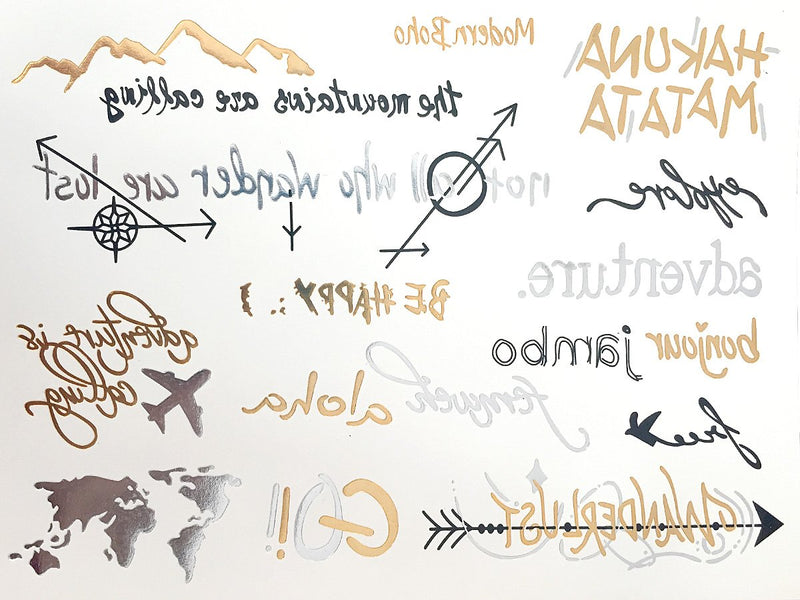 Modern Boho
HAKUNA
MATATA
the mountains are calling
not all who wander are lost
explore
adventure.
BE HAPPY :)
bonjour
jambo
adventure is
calling
aloha
fernweh
free
GO!!
WANDERLUST